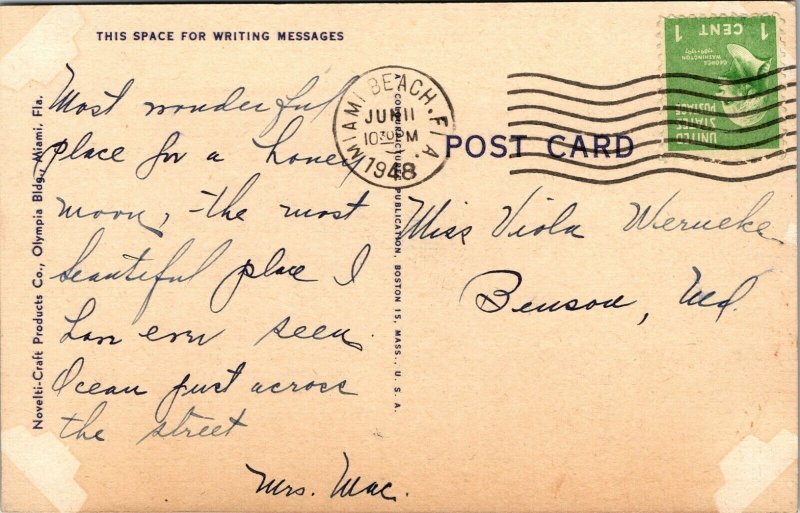 THIS SPACE FOR WRITING MESSAGES
Most wonderful
place for a honey
moon, - the most
beautiful place I
have ever seen.
Ocean just across
the street
Mrs. Mac.
Novelti-Craft Products Co., Olympia Bldg., Miami, Fla.
A COLOURPICTURE PUBLICATION, BOSTON 15, MASS., U. S. A.
MIAMI BEACH, FLA.
JUN 11
1030 PM
1948
POST CARD
UNITED
STATES
POSTAGE
GEORGE
WASHINGTON
1789-1797
1 CENT 1
Miss Viola Werneke
Benson, Md.